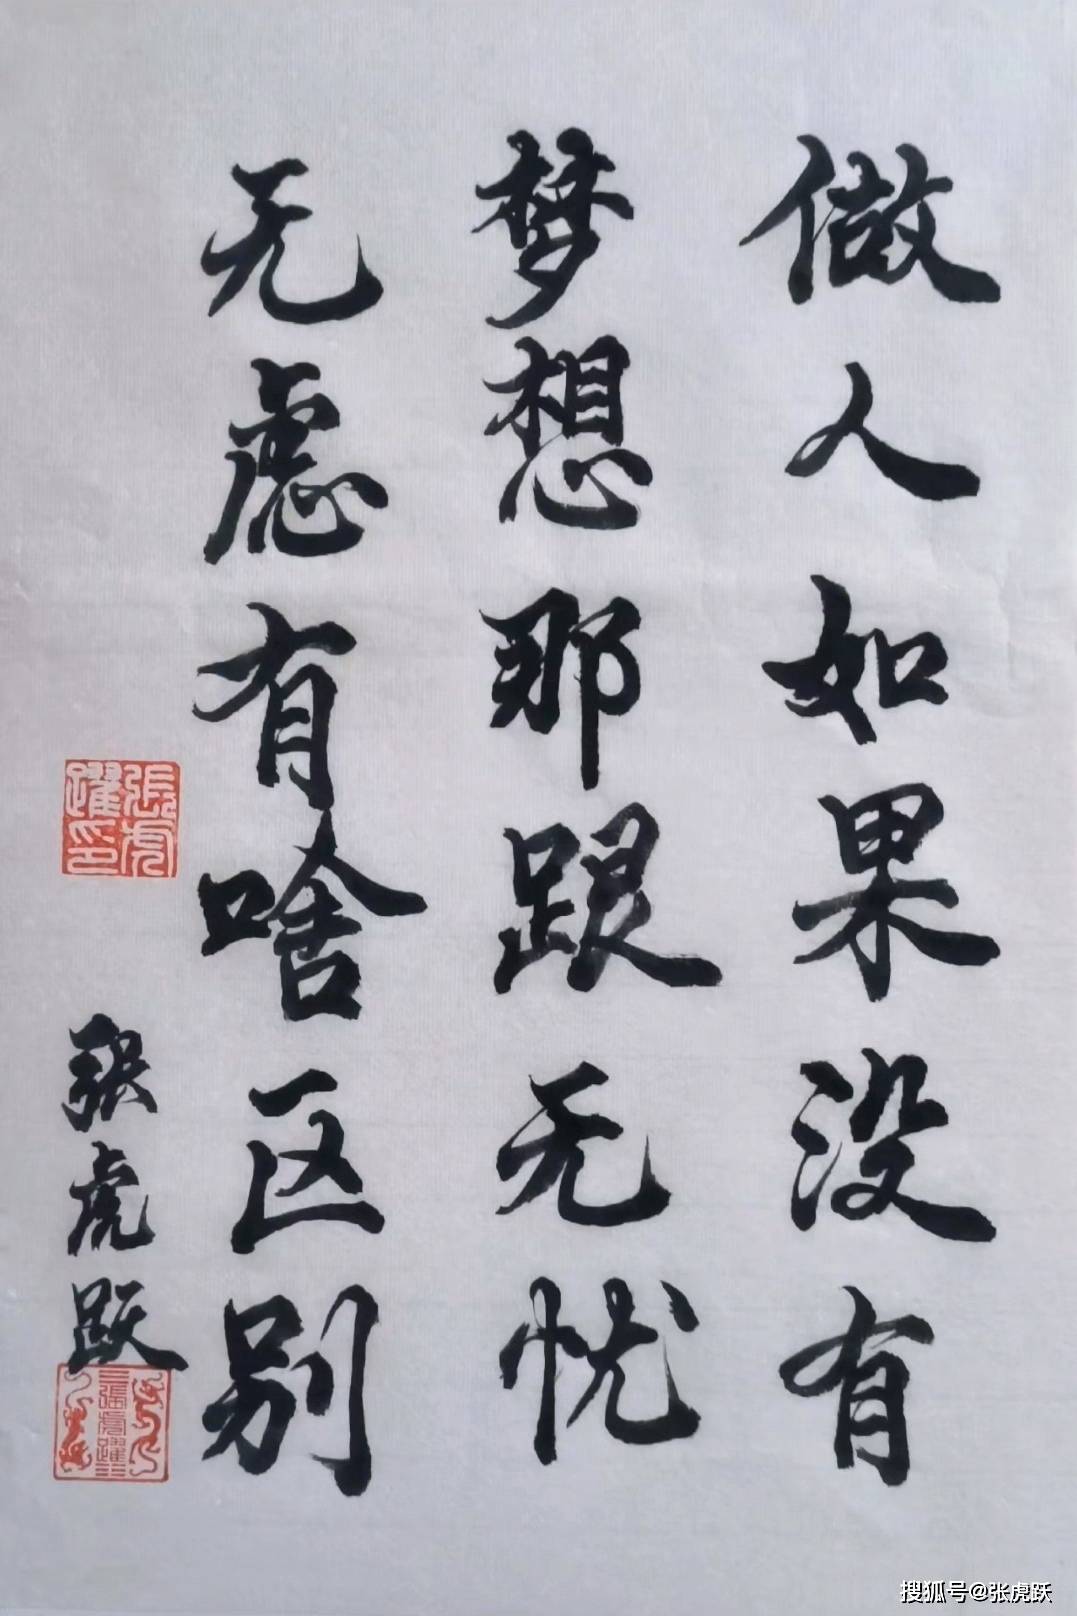 做人如果没有
梦想那跟无忧
无虑有啥区别
张虎跃
張虎躍印
張虎躍
搜狐号@张虎跃